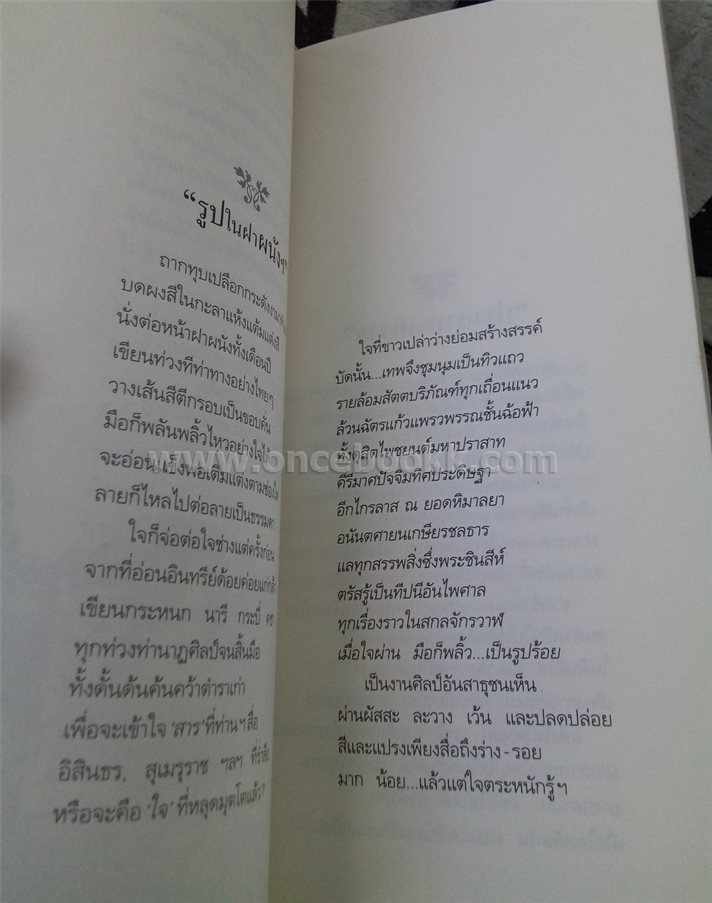 “รูปในฝาผนังฯ”
ถากทุบเปลือกกระดังงามา
บดผงสีในกะลาแห้งแต้มแต่ง
นั่งต่อหน้าฝาผนังทั้งเดือนปี
เขียนท่วงทีท่าทางอย่างไทยๆ
วางเส้นสีตีกรอบเป็นขอบคั่น
มือก็พลันพลิ้วไหวอย่างใจ
จะอ่อน แข็งพอเติมแต่งตาม
ลายก็ไหลไปต่อลายเป็นธรรมดา
ใจก็จ่อต่อใจช่างแต่ครั้งก่อน
จากที่อ่อนอินทรีย์ด้อยค่อยแก่กล้า
เขียนกระหนก นารี กระบี่ คชา
ทุกท่วงท่านาฏศิลป์จนสิ้นมือ
ทั้งดั้นด้นค้นคว้าตำราเก่า
เพื่อจะเข้าใจ ‘สาร’ ที่ท่านฯ สื่อ
อิสินธร, สุเมรุราช ฯลฯ ที่
หรือจะคือ ‘ใจ’ ที่หลุดมุตโตแล้ว?
ใจที่ขาวเปล่าว่างย่อมสร้างสรรค์
บัดนั้น...เทพจึงชุมนุมเป็นทิวแถว
รายล้อมสัตตบริภัณฑ์ทุกเถื่อนแนว
ล้วนฉัตรแก้วแพรวพรรณชั้นฉ้อฟ้า
ทั้งดุสิตไพชยนต์มหาปราสาท
คีรีมาศปัจจิมทิศประดิษฐา
อีกไกรลาส ณ ยอดหิมาลยา
อนันตศายนเกษียรชลธาร
แลทุกสรรพสิ่งซึ่งพระชินสีห์
ตรัสรู้เป็นทีปนีอันไพศาล
ทุกเรื่องราวในสกลจักรวาฬ
เมื่อใจผ่าน มือก็พลิ้ว...เป็นรูปร้อย
เป็นงานศิลป์อันสาธุชนเห็น
ผ่านผัสสะ ละวาง เว้น และปลดปล่อย
สีและแปรงเพียงสื่อถึงร่าง - รอย
มาก น้อย...แล้วแต่ใจตระหนักรู้ฯ